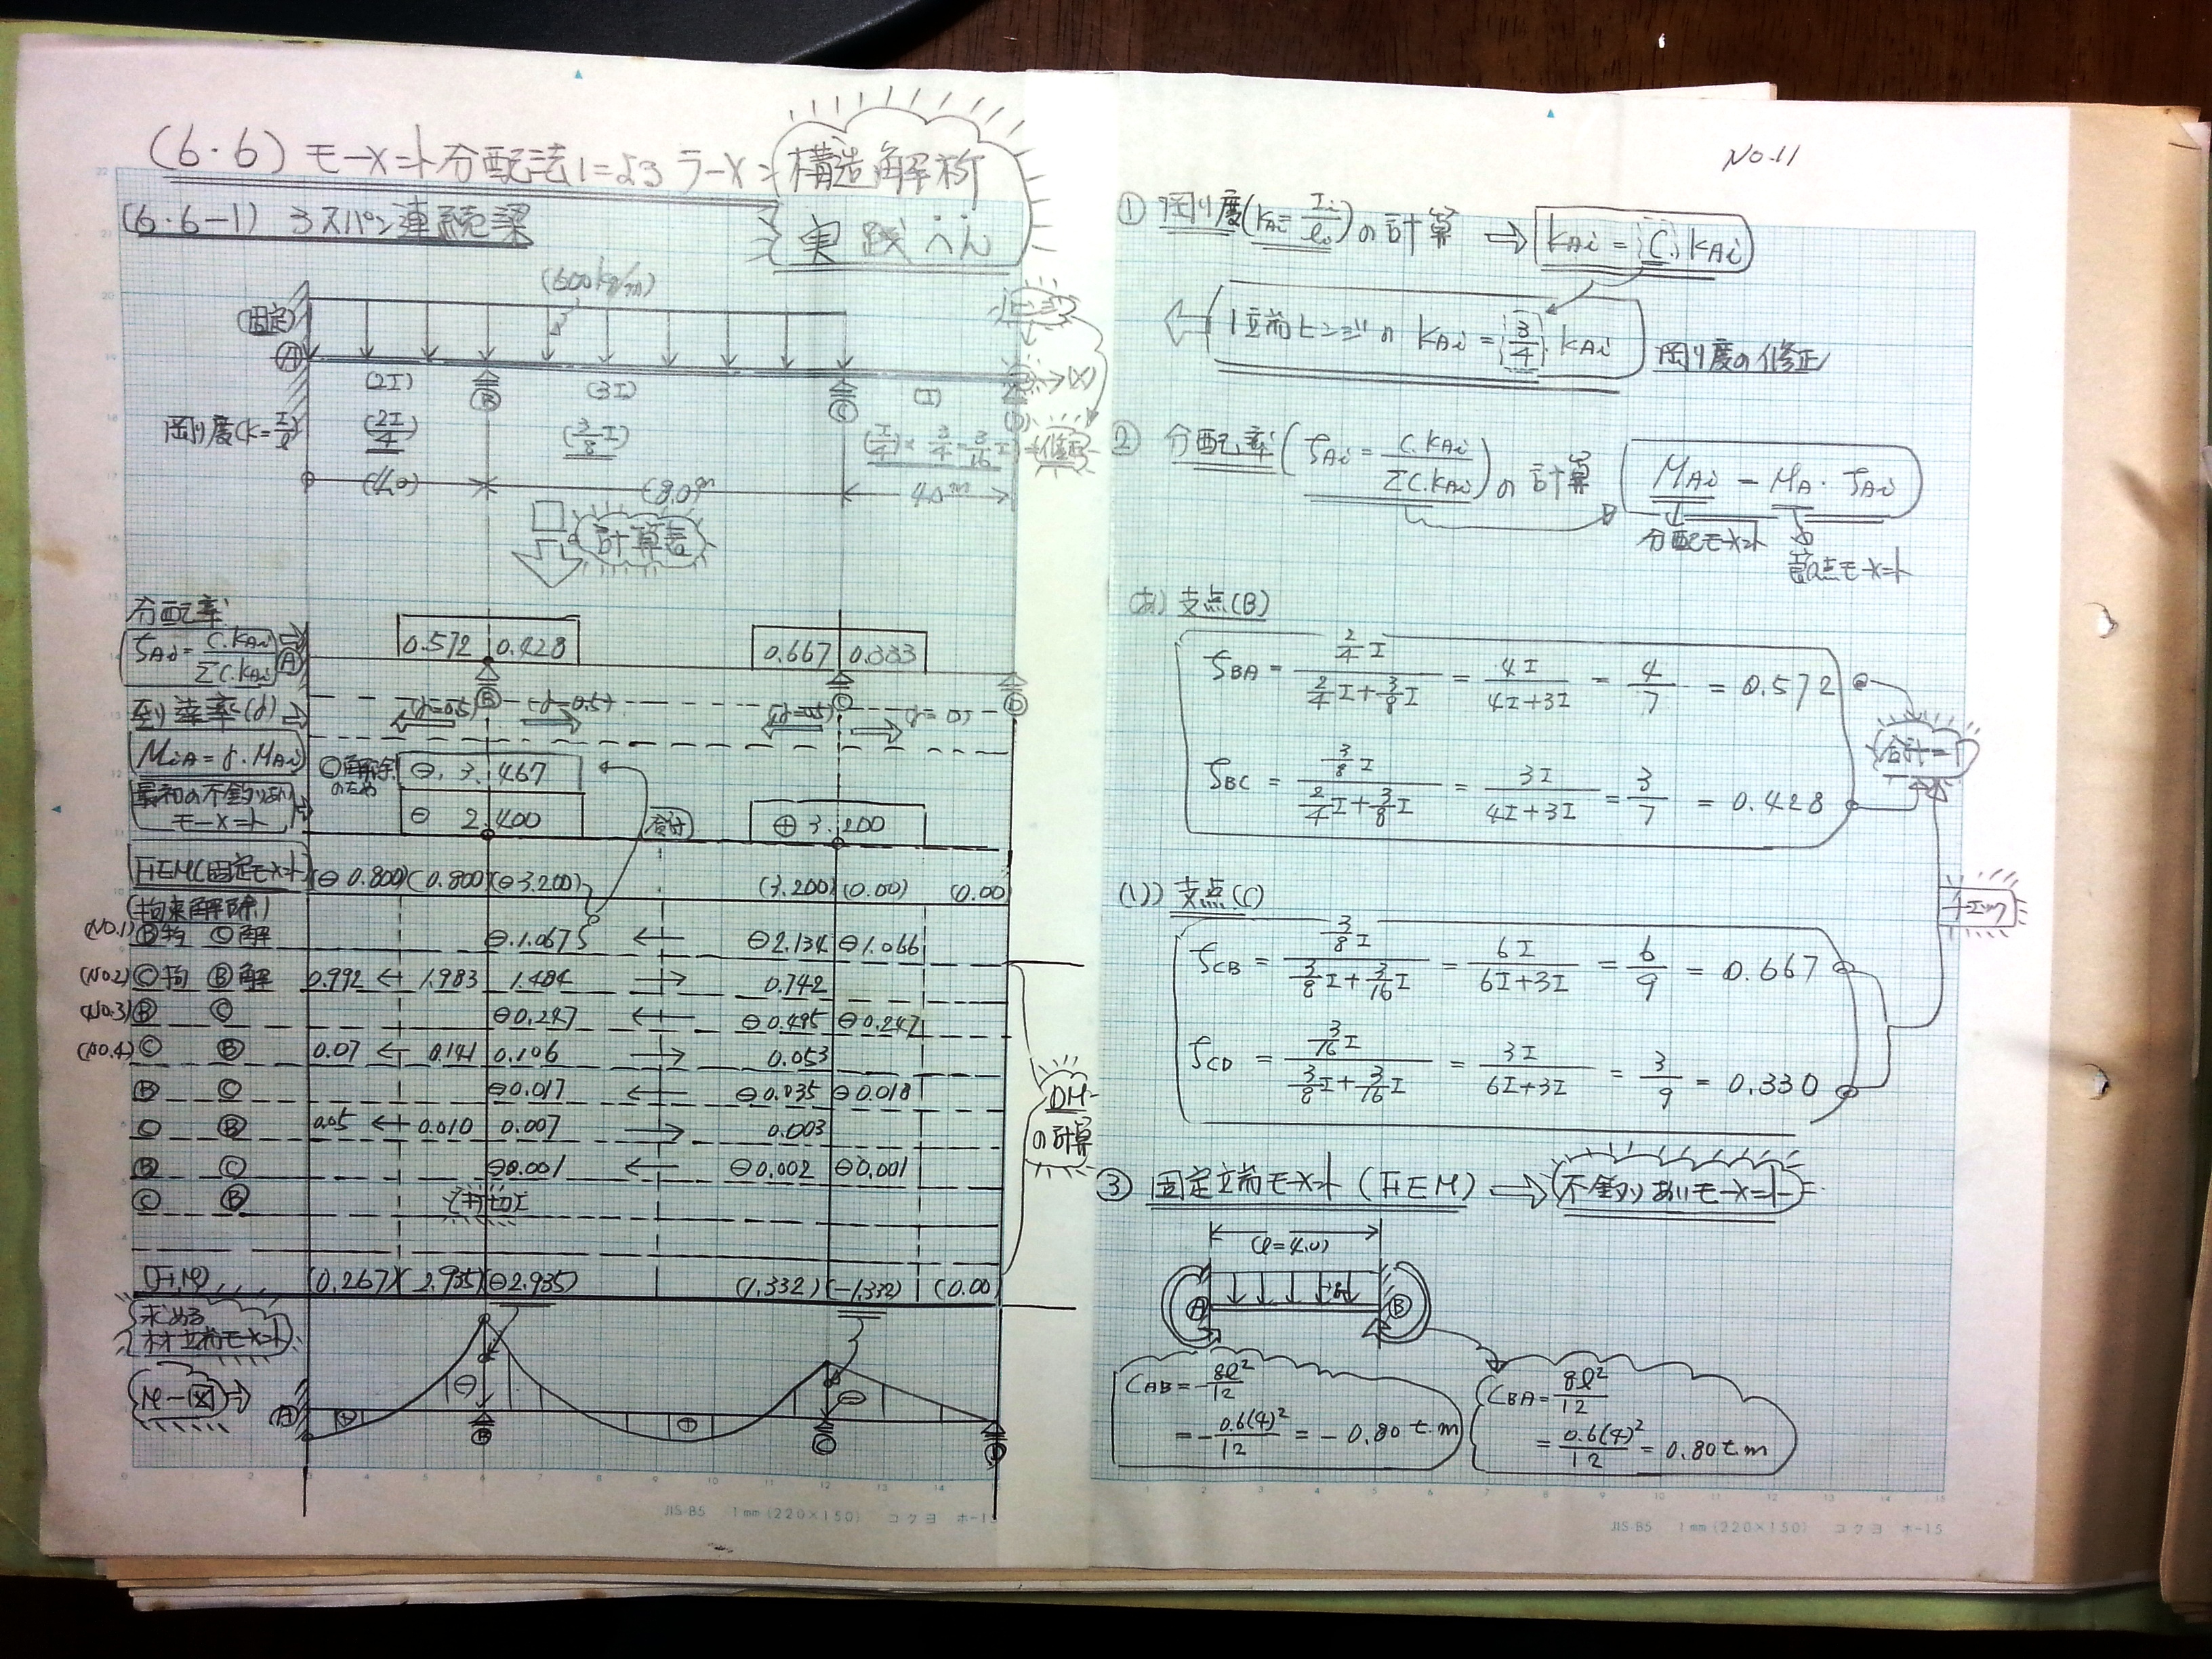 (6・6) モーメント分配法によるラーメン構造解析
実践へん
(6・6-1) 3スパン連続梁
(600kg/m)
(固定)
A
(2I)
B
(3I)
C
(I)
(x)
剛度(K=I/l)
(2I/4)
(3/8 I)
(I/4)×3/4=3/16 I
(4.0)
(8.0)m
4.0m
計算表
分配率
ζAi = C.KAi / ΣC.KAi
A
0.572 0.428
0.667 0.333
B
C
D
到達率(γ)
(γ=0.5)
(γ=0.5)
(γ=0.5)
γ=0.5
MiA=γ.MAi
C解除のため
⊖ 3.467
最初の不釣りあいモーメント
⊖ 2.400
合計
⊕ 3.200
FEM(固定モーメント)
(⊖0.800) (0.800) (⊖3.200)
(3.200) (0.00) (0.00)
(拘束解除)
(NO.1) B拘 C解 ⊖1.067 ← ⊖2.134 ⊖1.066
(NO.2) C拘 B解 0.992 ← 1.983 1.484 → 0.742
(NO.3) B C ⊖0.247 ← ⊖0.495 ⊖0.247
(NO.4) C B 0.07 ← 0.141 0.106 → 0.053
B C ⊖0.017 ← ⊖0.035 ⊖0.018
C B 0.05 ← 0.010 0.007 → 0.003
B C ⊖0.001 ← ⊖0.002 ⊖0.001
C B
DM の計算
(F.M) (0.267) (2.935) (⊖2.935) (1.332) (-1.332) (0.00)
求める材端モーメント
M-図
A
B
C
D
JIS B5 1mm (220×150) コクヨ ホ-15
NO.11
① 剛度(KAi = Ii/li)の計算 ⇒ KAi = (C) KAi
1端ヒンジの KAi = (3/4) KAi 剛度の修正
② 分配率(ζAi = C.KAi / ΣC.KAi)の計算
MAi = MA・ζAi
分配モーメント
節点モーメント
(あ) 支点(B)
ζBA = (2/4 I) / (2/4 I + 3/8 I) = 4I / (4I+3I) = 4/7 = 0.572
ζBC = (3/8 I) / (2/4 I + 3/8 I) = 3I / (4I+3I) = 3/7 = 0.428
合計=1
チェック
(い) 支点(C)
ζCB = (3/8 I) / (3/8 I + 3/16 I) = 6I / (6I+3I) = 6/9 = 0.667
ζCD = (3/16 I) / (3/8 I + 3/16 I) = 3I / (6I+3I) = 3/9 = 0.330
③ 固定端モーメント (FEM) ⇒ 不釣りあいモーメント
(l=4.0)
A
B
CAB = -gl²/12
= -0.6(4)²/12 = -0.80 t.m
CBA = gl²/12
= 0.6(4)²/12 = 0.80 t.m
JIS B5 1mm (220×150) コクヨ ホ-15